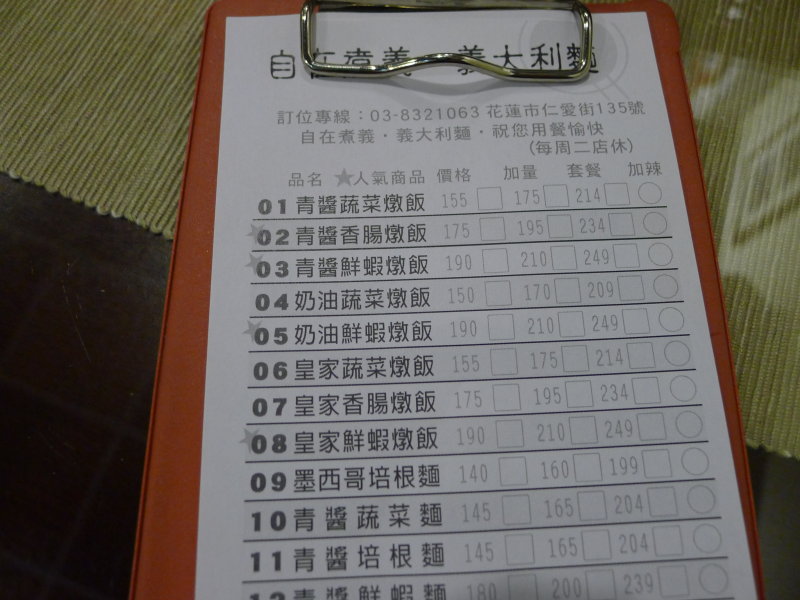 自在煮義 義大利麵
訂位專線：03-8321063 花蓮市仁愛街135號
自在煮義·義大利麵·祝您用餐愉快
(每周二店休)
品名 ★人氣商品 價格 加量 套餐 加辣
01 青醬蔬菜燉飯 155 175 214
★02 青醬香腸燉飯 175 195 234
★03 青醬鮮蝦燉飯 190 210 249
04 奶油蔬菜燉飯 150 170 209
★05 奶油鮮蝦燉飯 190 210 249
06 皇家蔬菜燉飯 155 175 214
07 皇家香腸燉飯 175 195 234
★08 皇家鮮蝦燉飯 190 210 249
09 墨西哥培根麵 140 160 199
10 青醬蔬菜麵 145 165 204
11 青醬培根麵 145 165 204
12 青醬鮮蝦麵 180 200 239